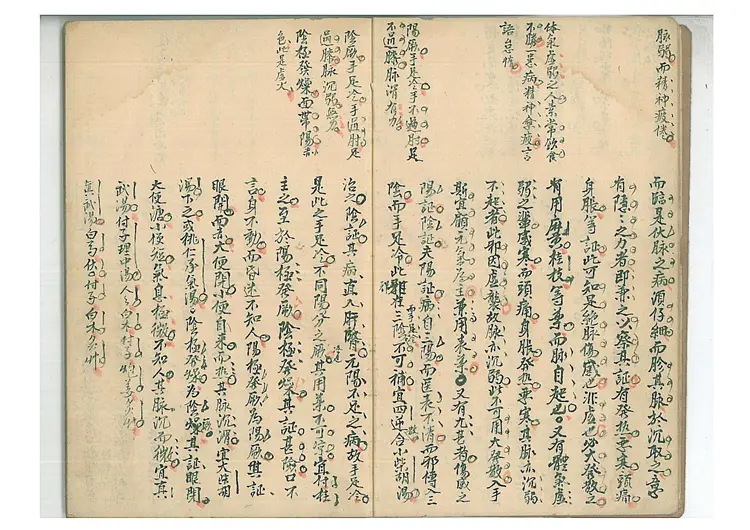 脉弱而精神疲倦
体気虚弱之人素常飲食
不勝一累病精神拿疲言
語怠惰
陽厥手足冷手不過肘足
不過膝脉滑有力
陰厥手足冷手過肘足
過膝脉沉弱無力
陰極發燥面帶陽赤
色此是虛火
而臨是伏脉之病須仔細而診其脉於沉取之
有障之力者即兼之以察其証有發热悪寒頭痛
身脹等証此可知足絶脉傷感也非虚也必大發散之
有用麻黄桂枝等薬而脉自起也又有體氣虚
弱之輩感寒而頭痛身脹發热悪寒其脉亦沉弱
不起者此邪因虛襲故脉亦沉弱此不可用大發散入手
斯宜顧元氣為主兼用表薬又有凡
陽証陰証夫陽証病自三陽而医表不清而邪傳入三
陰而手足冷此邪在三陰不可補宜四逆合小柴胡湯
治之陰証其病直入肝腎元陽不足之病故手足冷
是此之手足冷不同陽分之厥其用薬不可宜付桂
主之至於陽極發厥陰極發燥其証甚險口不
言身不動而昏迷不知人陽極發厥為陽厥其証
眼閉面赤大便閉小便自来而热其脉沉滑宜大柴胡
湯下之或桃仁承氣湯陰極發燥為陰燥其証眼閉
大便溏小便短氣息極微不知人其脉沉而微宜真
武湯付子理中湯人参白术付子
真武湯白芍茯付子白术